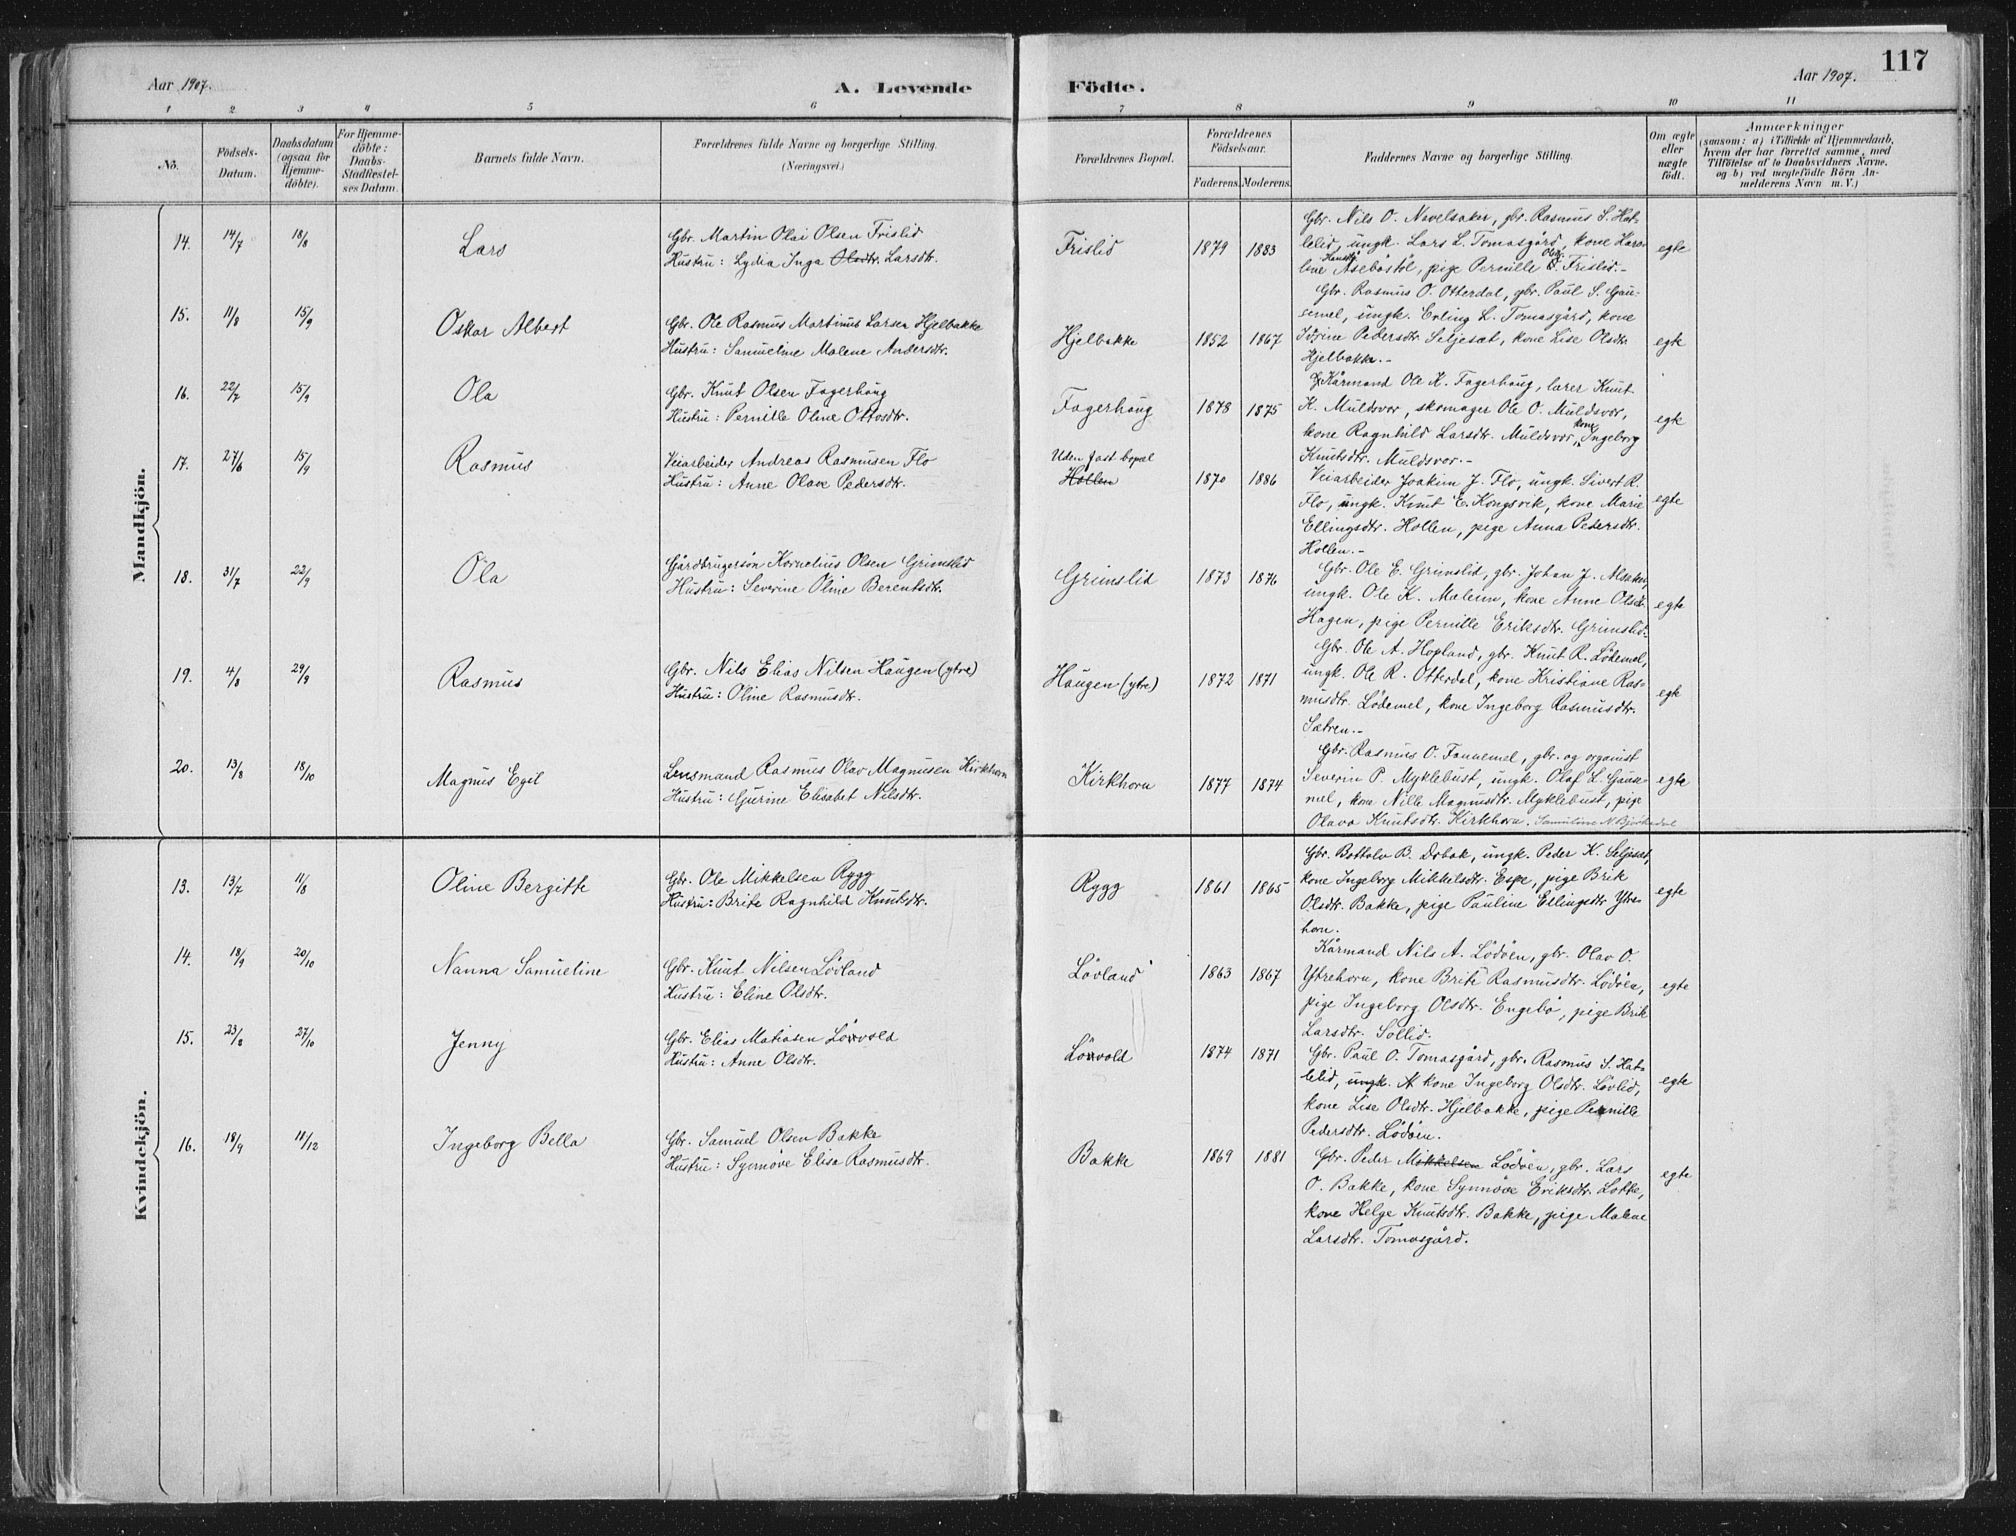 117
Aar 1907.
A. Levende
Födte.
Aar 1907.
1 2 3 4 5 6 7 8 9 10 11
No.
Födsels-
Datum.
Daabsdatum
(ogsaa for
Hjemme-
döbte).
For Hjemme-
döbte:
Daabs-
Stadfæstel-
ses Datum.
Barnets fulde Navn.
Forældrenes fulde Navne og borgerlige Stilling.
(Næringsvei.)
Forældrenes Bopæl.
Forældrenes
Födselsaar.
Faderens.
Moderens.
Faddernes Navne og borgerlige Stilling.
Om ægte
eller
uægte
födt.
Anmærkninger
(saasom: a) i Tilfælde af Hjemmedaab,
hvem der har forrettet samme, med
Tilföielse af to Daabsvidners Navne,
og b) ved uægtefödte Börn An-
melderens Navn m. V.)
Mandkjön.
14.
14/7
18/8
Lars
Gbr. Martin Olai Olsen Frislid
Hustru: Lydia Inga Olsdtr. Larsdtr.
Frislid
1879
1883
Gbr. Nils O. Navelsaker, gbr. Rasmus S. Hat-
lelid, ungk. Lars L. Tomasgård, kone Karo-
line Hansdtr. Åsebøstöl, pige Pernille Olsdtr. Frislid.-
egte
15.
11/8
15/9
Oskar Albert
Gbr. Ole Rasmus Martinus Larsen Hjelbakke
Hustru: Samueline Malene Andersdtr.
Hjelbakke
1852
1867
Gbr. Rasmus O. Otterdal, gbr. Paul S. Gau-
semel, ungk. Erling L. Tomasgård, kone
Pedersdtr. Seljeset, kone Lise Olsdtr.
Hjelbakke.-
egte
16.
22/7
15/9
Ola
Gbr. Knut Olsen Fagerhaug
Hustru: Pernille Oline Ottosdtr.
Fagerhaug
1878
1875
Kårmand Ole K. Fagerhaug, lærer Knut
K. Muldsvor, skomager Ole O. Muldsvor,
kone Ragnhild Larsdtr. Muldsvor, kone Ingeborg
Knutsdtr. Muldsvor.-
egte
17.
27/6
15/9
Rasmus
Veiarbeider Andreas Rasmusen Flo
Hustru: Anne Olave Pedersdtr.
Uden fast bopæl
Hollen
1870
1886
Veiarbeider Joakim J. Flo, ungk. Sivert R.
Flo, ungk. Knut E. Kongsvik, kone Marie
Ellingsdtr. Hollen, pige Anna Pedersdtr.
Hollen.-
egte
18.
31/7
22/9
Ola
Gårdbrugersön Kornelius Olsen Grimslid
Hustru: Severine Oline Berentsdtr.
Grimslid
1873
1876
Gbr. Ole E. Grimslid, gbr. Johan J. Alsaker,
ungk. Ole K. Maleim, kone Anne Olsdtr.
Hagen, pige Pernille Eriksdtr. Grimslid.-
egte
19.
4/8
29/9
Rasmus
Gbr. Nils Elias Nilsen Haugen (ytre)
Hustru: Oline Rasmusdtr.
Haugen (ytre)
1872
1871
Gbr. Ole A. Hopland, gbr. Knut R. Lödemel,
ungk. Ole R. Otterdal, kone Kristiane Ras-
musdtr. Lödemel, kone Ingeborg Rasmusdtr.
Sætren.-
egte
20.
13/8
18/10
Magnus Egil
Lensmand Rasmus Olav Magnusen Kirkhorn
Hustru: Gjurine Elisabet Nilsdtr.
Kirkhorn
1877
1874
Gbr. Rasmus O. Fannemel, gbr. og organist
Severin P. Myklebust, ungk. Olaf L. Gause-
mel, kone Nille Magnusdtr. Myklebust, pige
Olava Knutsdtr. Kirkhorn. Samueline N. Bjørkedal
egte
Kvindekjön.
13.
13/7
11/8
Oline Bergitte
Gbr. Ole Mikkelsen Rygg
Hustru: Brite Ragnhild Knutsdtr.
Rygg
1861
1865
Gbr. Bottolv B. Drbak, ungk. Peder K. Seljeset,
kone Ingeborg Mikkelsdtr. Espe, pige Brit
Olsdtr. Bakke, pige Pauline Ellingsdtr. Ytre-
horn.
egte
14.
18/9
20/10
Nanna Samueline
Gbr. Knut Nilsen Lövland
Hustru: Eline Olsdtr.
Lövland
1863
1867
Kårmand Nils A. Lödöen, gbr. Olav O.
Ytrehorn, kone Brite Rasmusdtr. Lödöen,
pige Ingeborg Olsdtr. Engebö, pige Brit
Larsdtr. Sollid.
egte
15.
23/8
27/10
Jenny
Gbr. Elias Matiasen Lövvold
Hustru: Anne Olsdtr.
Lövvold
1874
1871
Gbr. Paul O. Tomasgård, gbr. Rasmus S. Hat-
lelid, ungk. kone Ingeborg Olsdtr. Lövlid,
kone Lise Olsdtr. Hjelbakke, pige Pernille
Pedersdtr. Lödöen.
egte
16.
18/9
11/12
Ingeborg Bella
Gbr. Samuel Olsen Bakke
Hustru: Synnöve Elisa Rasmusdtr.
Bakke
1869
1881
Gbr. Peder Mikkelsen Lödöen, gbr. Lars
O. Bakke, kone Synnöve Eriksdtr. Lotke,
kone Helge Knutsdtr. Bakke, pige Malene
Larsdtr. Tomasgård.
egte